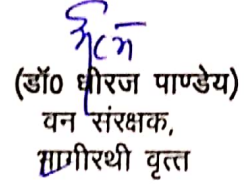 (डॉ0 धीरज पाण्डेय)
वन संरक्षक,
भागीरथी वृत्त